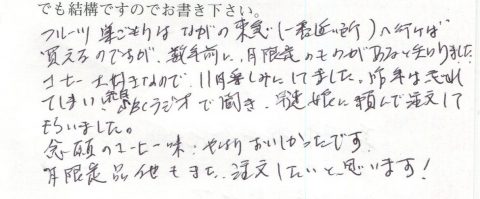 でも結構ですのでお書き下さい。
フルーツ巣ごもりは ながの東急(一番近い所)へ行けば
買えるのですが、数年前に、月限定のものがあると知りました
コーヒー大好きなので、11月楽しみにしてました。昨年は忘れ
てしまい、SBCラジオで聞き、娘に頼んで注文して
もらいました。
念願のコーヒー味、やはりおいしかったです。
月限定品他もまた、注文したいと思います!